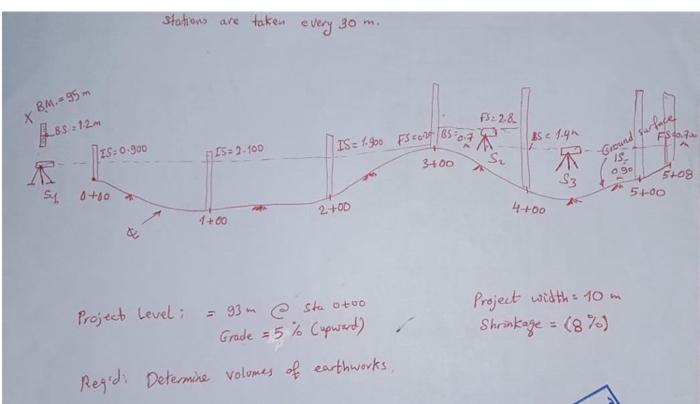 Stations are taken every 30 m.
X B.M. = 95 m
B.S. = 1.2 m
IS = 0.900
IS = 2.100
IS = 1.900
BS = 0.7
FS = 2.8
BS = 1.4
Ground surface
IS =
0.90
S1
0+00
1+00
2+00
3+00
S2
4+00
S3
5+00
5+08
Project Level : = 93 m @ sta 0+00
Grade = 5 % (upward)
Project width = 10 m
Shrinkage = (8 %)
Req'd : Determine volumes of earthworks.